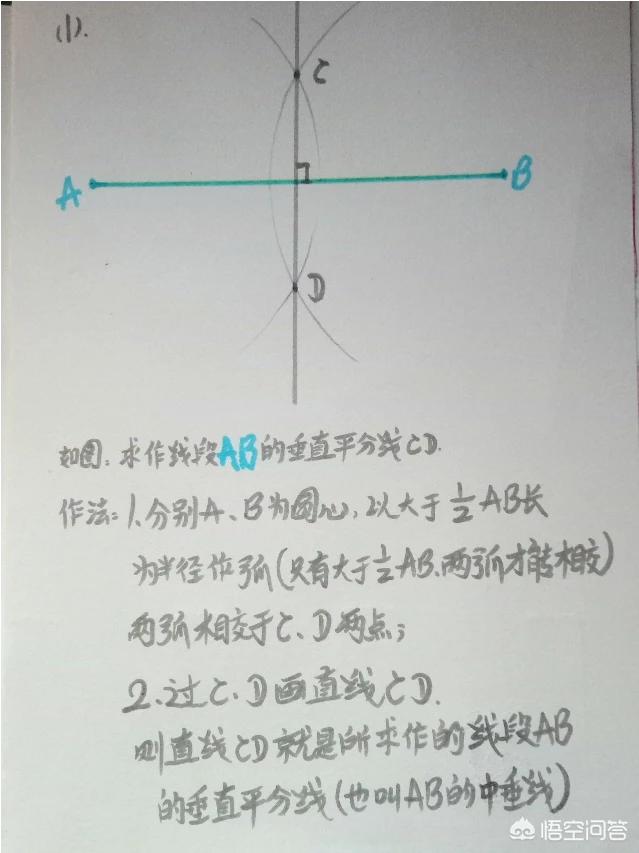 (1).
C
A
B
D
如图:求作线段AB的垂直平分线CD.
作法:1.分别A、B为圆心,以大于1/2AB长
为半径作弧(只有大于1/2AB、两弧才能相交)
两弧相交于C、D两点;
2.过C、D画直线CD.
则直线CD就是所求作的线段AB
的垂直平分线(也叫AB的中垂线)
悟空问答